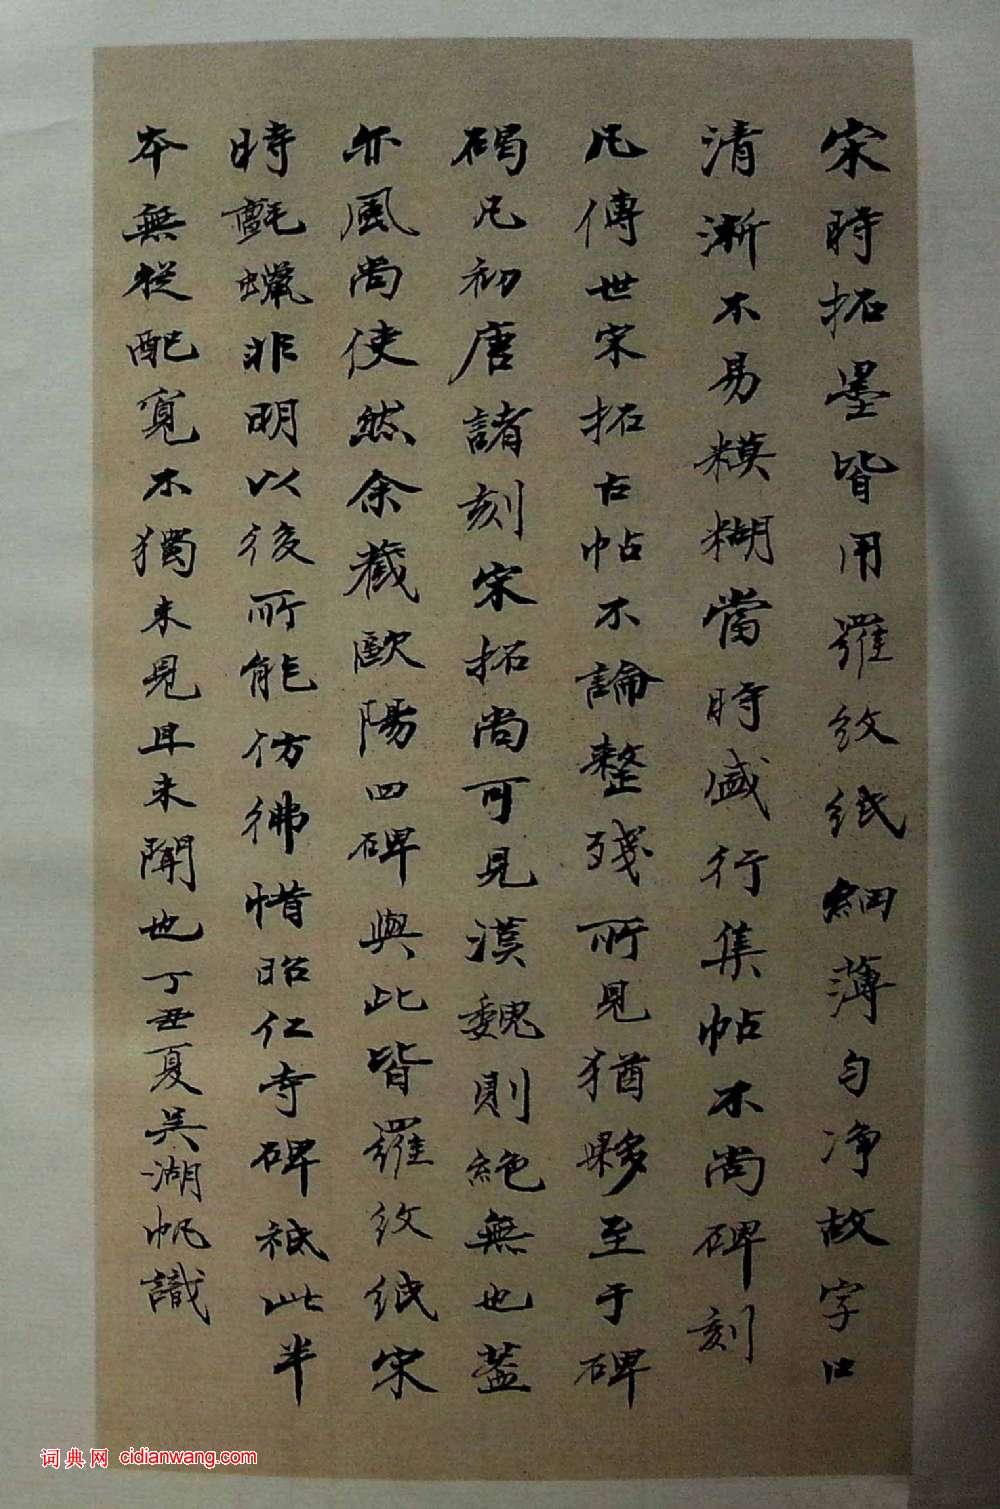 宋時拓墨皆用羅紋紙細薄勻净故字口
清漸不易糢糊當時盛行集帖不尚碑刻
凡傳世宋拓古帖不論整殘所見猶夥至于碑
碣凡初唐諸刻宋拓尚可見漢魏則絶無也蓋
亦風尚使然余藏歐陽四碑與此皆羅紋紙宋
時氈蠟非明以後所能仿彿惜昭仁寺碑祗此半
本無從配覓不獨未見且未聞也丁丑夏吴湖帆識
词典网 cidianwang.com